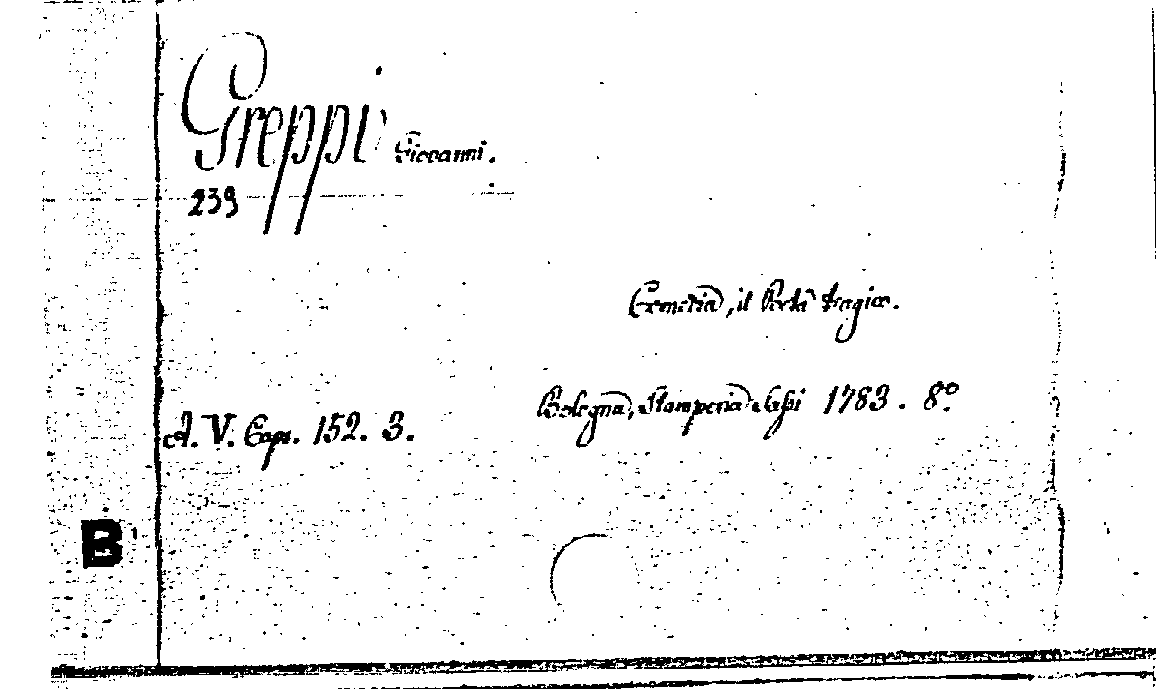 Greppi Giovanni.
239
Gometia, il Poeta tragico.
Bologna, Stamperia Sassi 1783. 8º.
A. V. Caps. 152. 3.
B